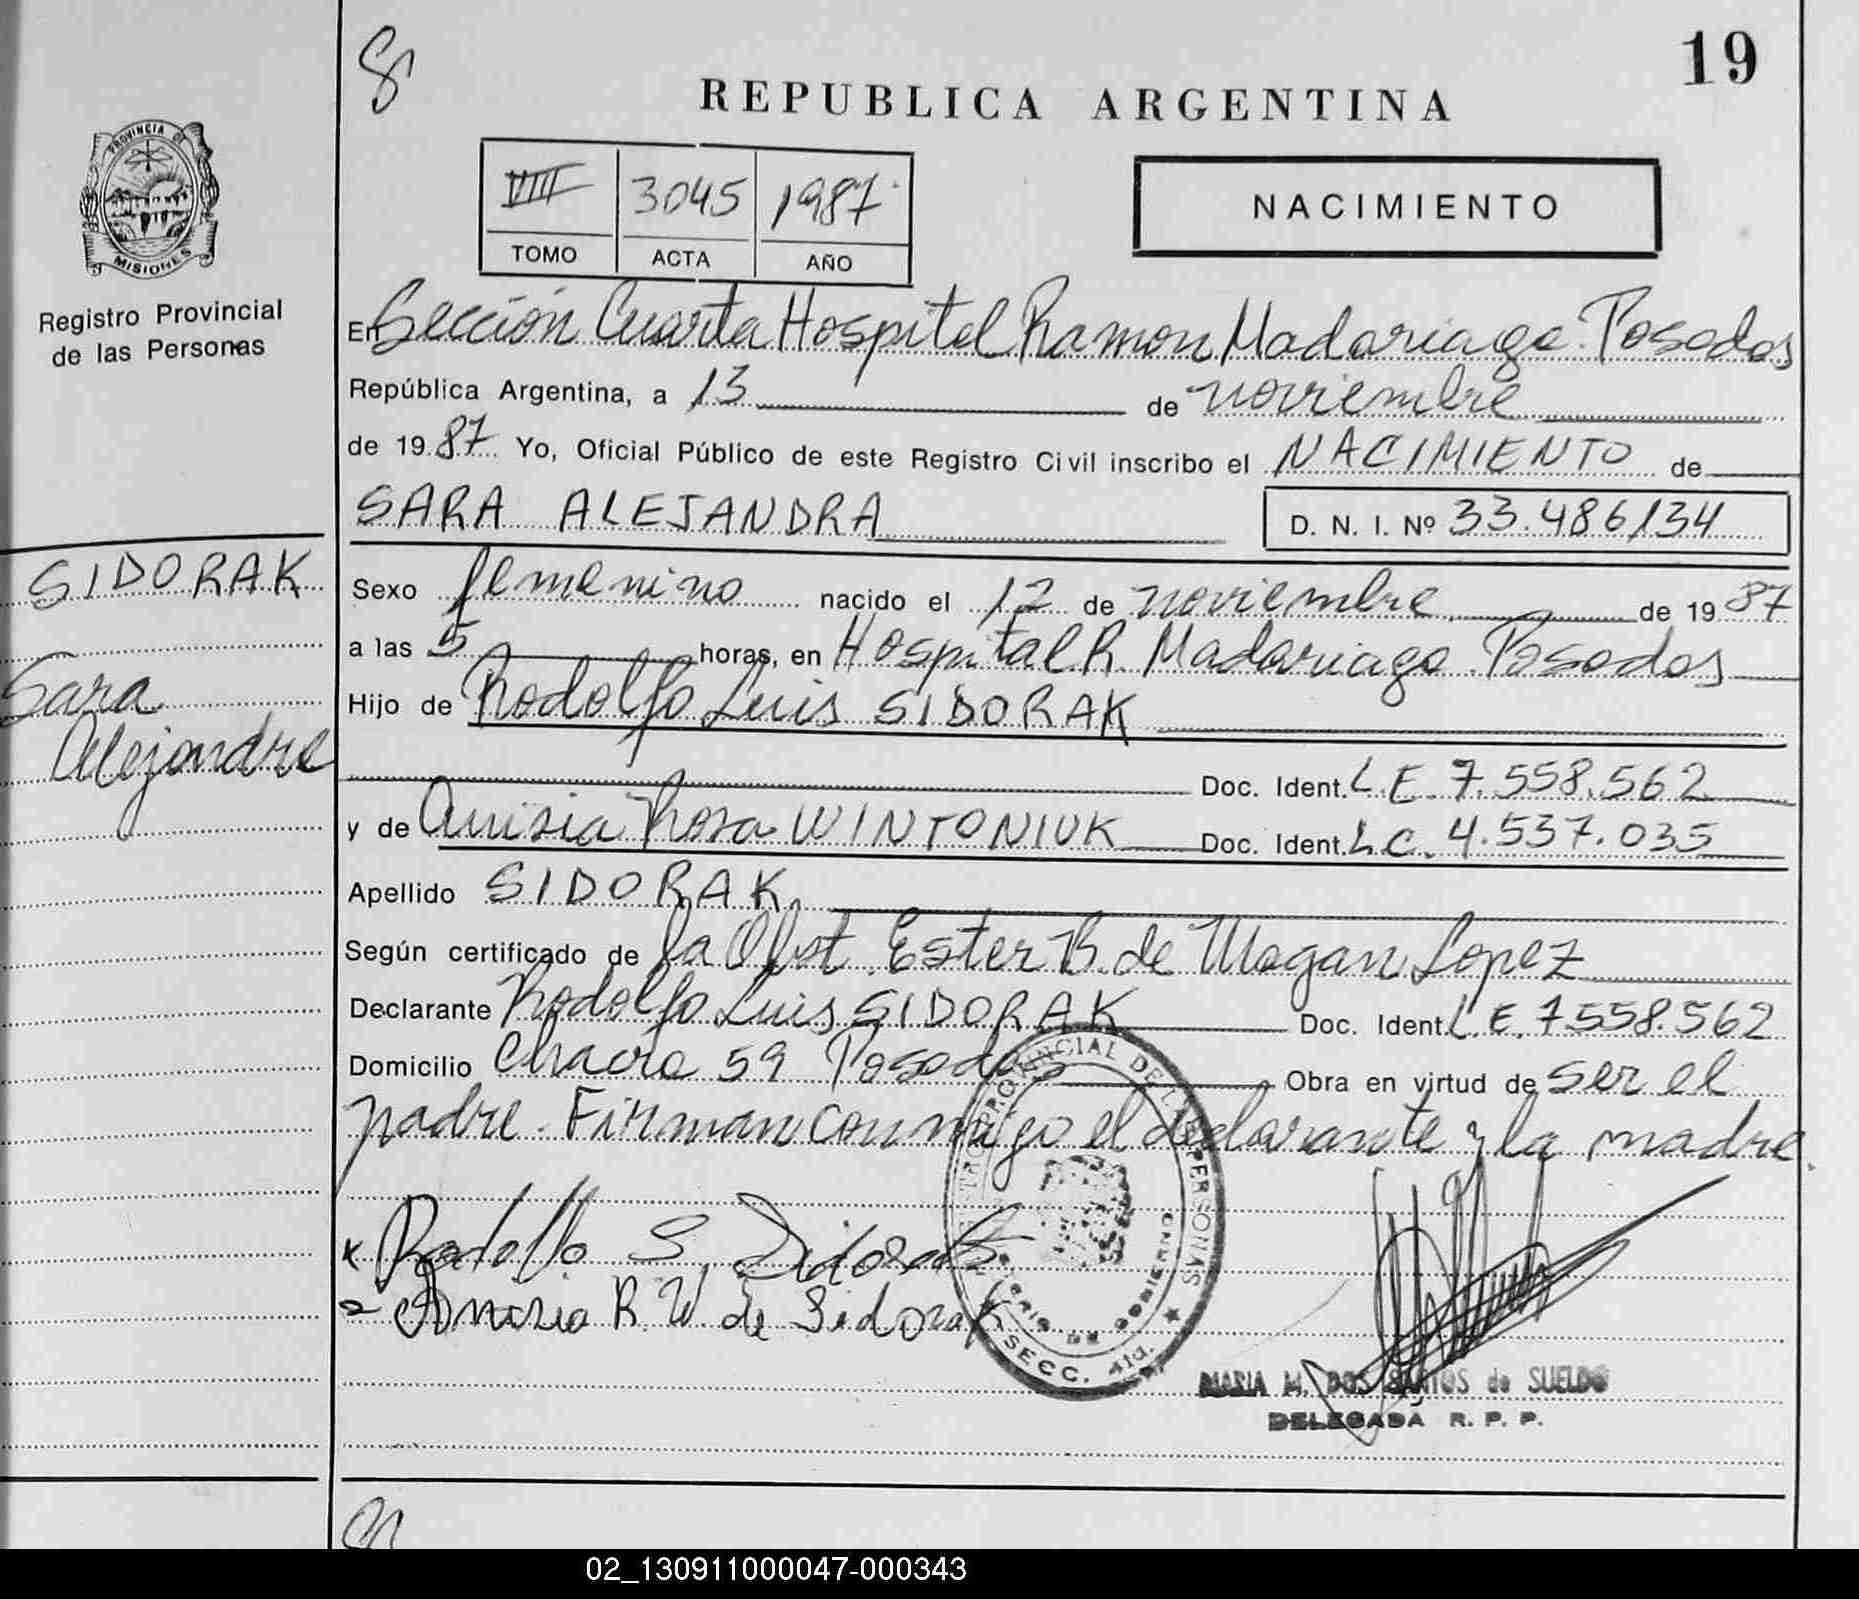 19
REPUBLICA ARGENTINA
PROVINCIA DE
MISIONES
Registro Provincial
de las Personas
VIII 3045 1987
TOMO ACTA AÑO
NACIMIENTO
En Sección Cuarta Hospital Ramon Madariaga. Posadas
República Argentina, a 13 de noviembre
de 19 87 Yo, Oficial Público de este Registro Civil inscribo el NACIMIENTO de
SARA ALEJANDRA D. N. I. Nº 33.486134
SIDORAK
Sara
Alejandra
Sexo femenino nacido el 12 de noviembre de 19 87
a las 5 horas, en Hospital R. Madariaga. Posadas
Hijo de Rodolfo Luis SIDORAK
Doc. Ident. L.E. 7.558.562
y de Anisia Rosa WINTONIUK Doc. Ident. L.C. 4.537.035
Apellido SIDORAK
Según certificado de la Obst. Ester B. de Magan Lopez
Declarante Rodolfo Luis SIDORAK Doc. Ident. L.E. 7558.562
Domicilio Chacra 59 Posadas Obra en virtud de ser el
padre. Firman conmigo el declarante y la madre.
Rodolfo S Sidorak
Anisia R. W. de Sidorak
PROVINCIAL DE LAS PERSONAS
DE GOBIERNO
SECC. 4ta.
MARIA M. DOS SANTOS de SUELDO
DELEGADA R. P. P.
02_130911000047-000343